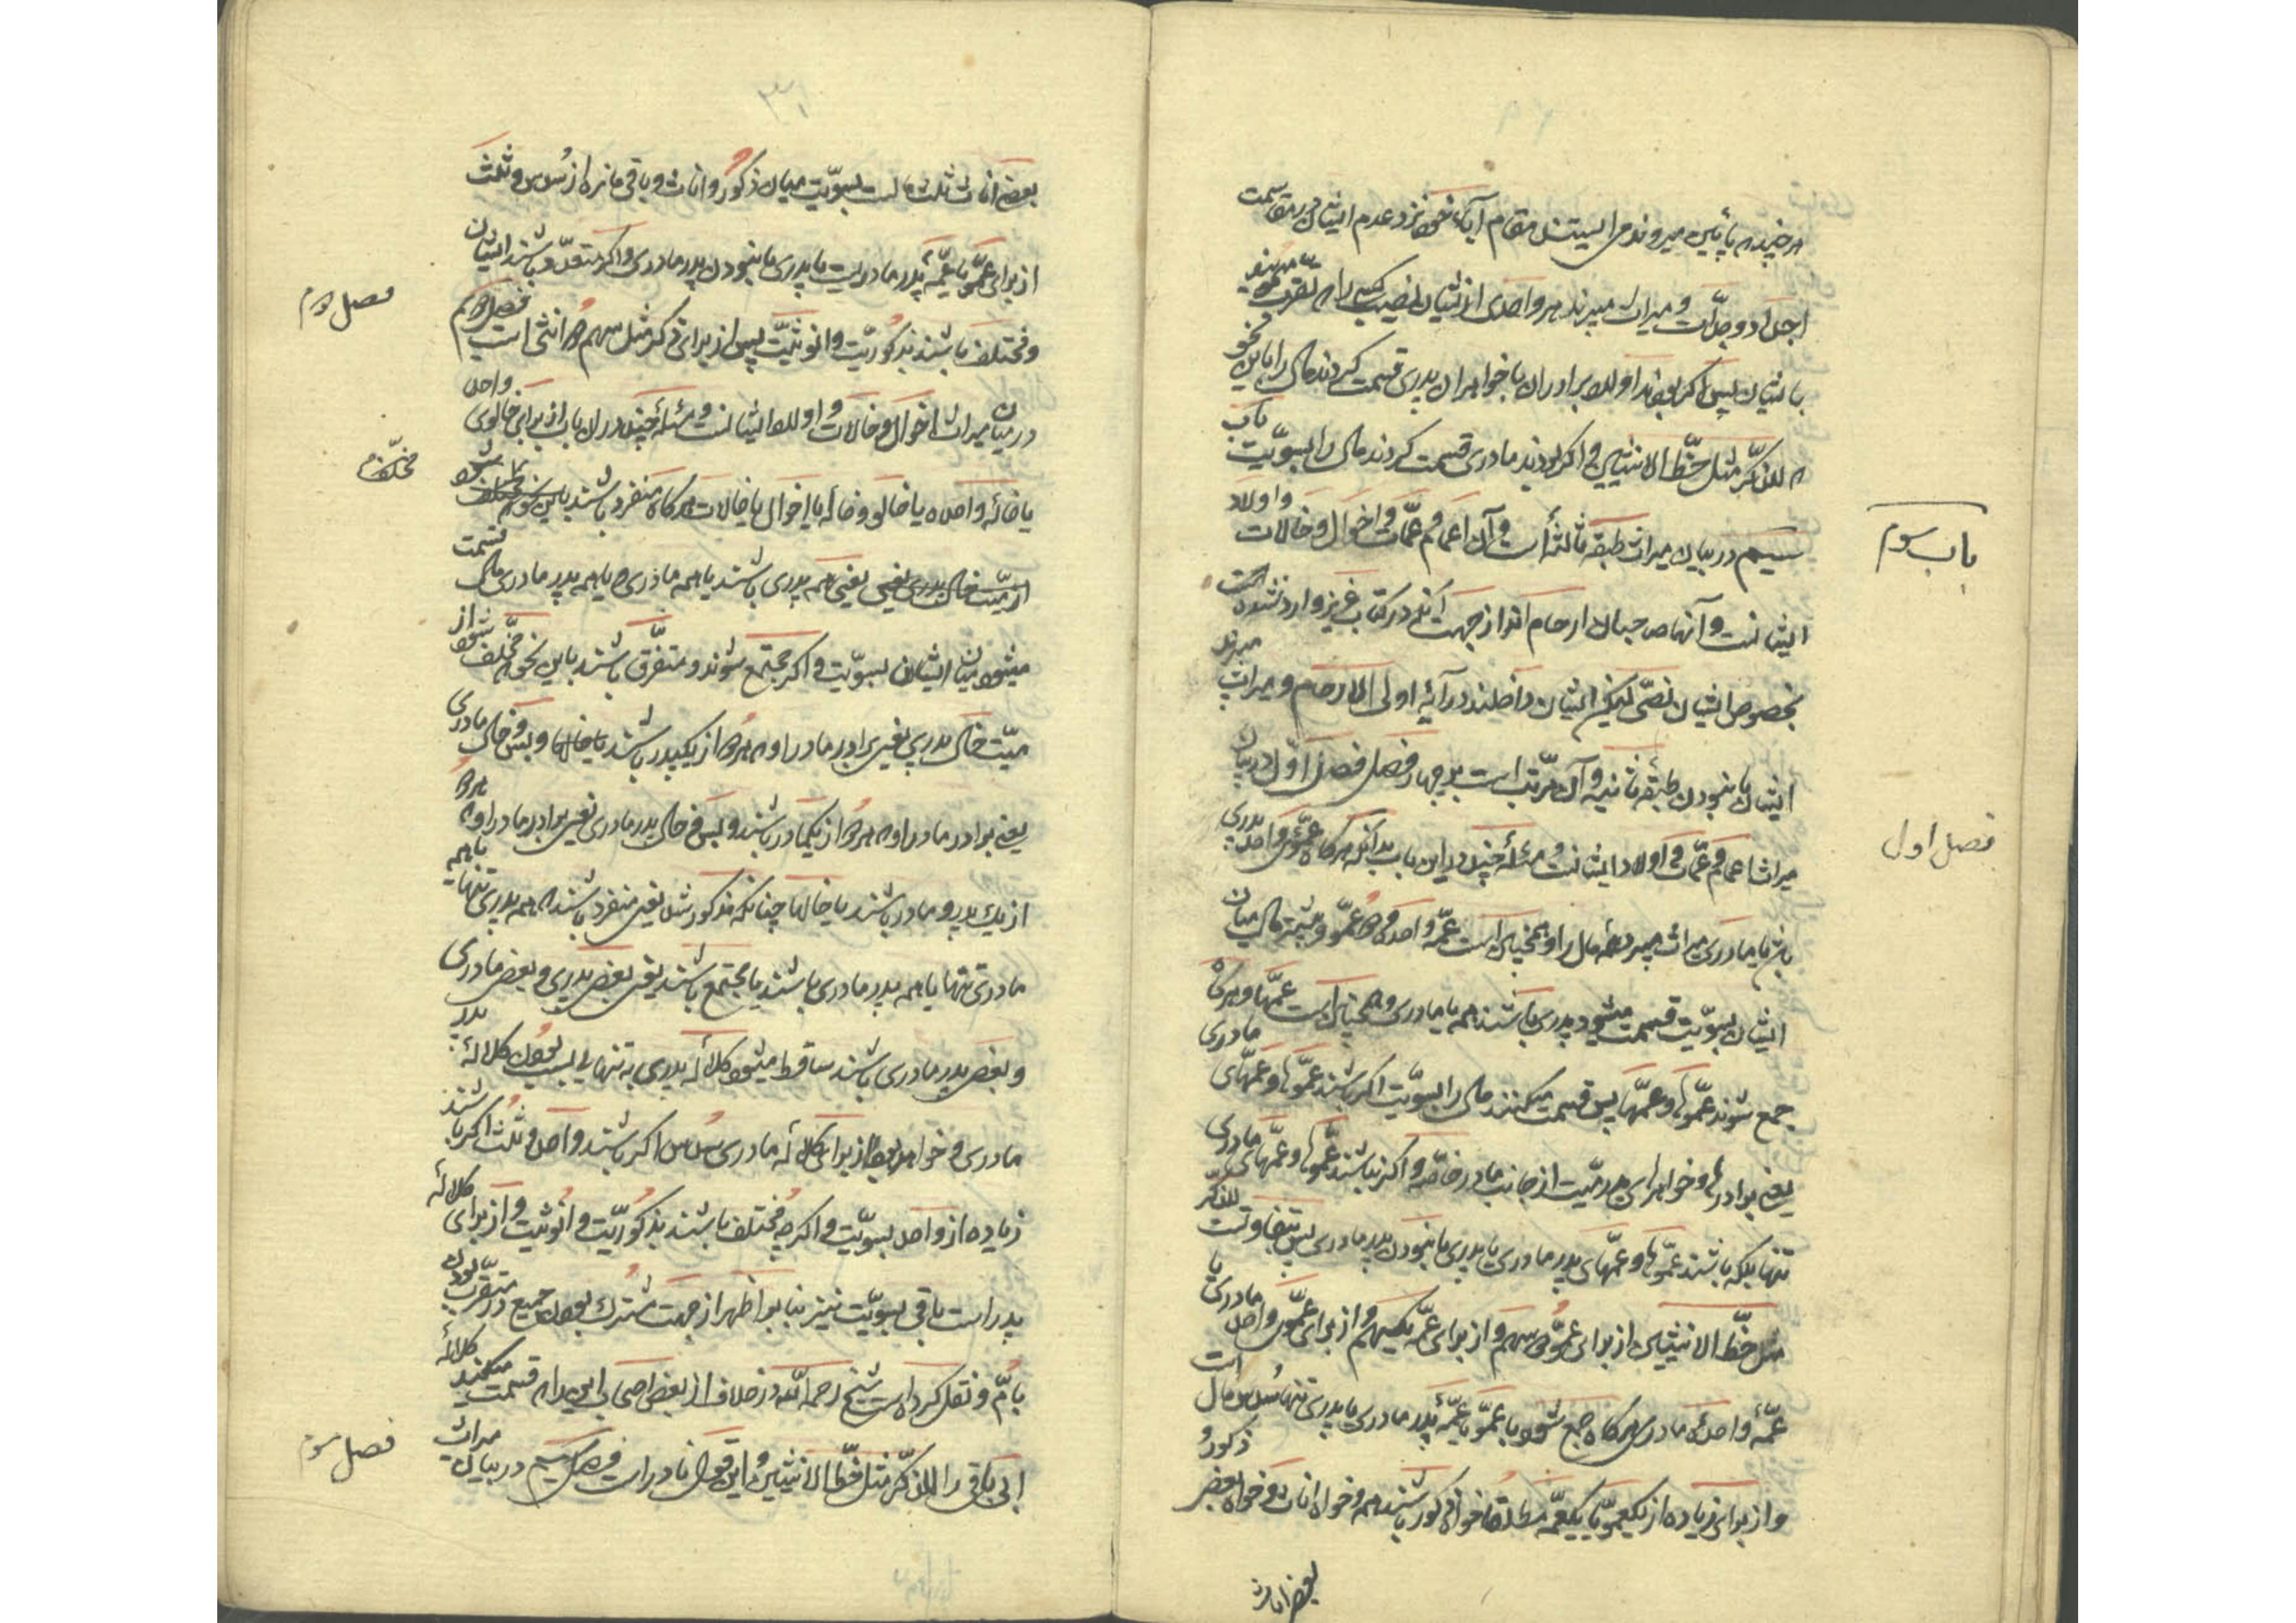 هرچند که پائین میروند می ایستند مقام آباء خود نزد عدم ایشان در مقاسمت
اجداد و جدّات و میراث میبرند هر واحدی از ایشان نصیب کسی را که تقرّب میجوید
بایشان پس اگر بودند اولاد برادران یا خواهران پدری قسمت کردند مال را باین نحو
که للذکر مثل حظّ الانثیین و اگر بودند مادری قسمت کردند مال را بسویّت باب
باب سوم
سیم در بیان میراث طبقه ثالثه است و آن اعمام و عمّات و اخوال و خالات و اولاد
ایشانست و آنها صاحبان ارحام اند از جهت آنکه در کتاب عزیز وارد نشده است
بخصوص ایشان نصّی لیکن ایشان داخلند در آیه اولی الارحام و میراث میبرند
ایشان با نبودن طبقه ثانیه و آن مرتّب است بر چهار فصل فصل اوّل در بیان
فصل اول
میراث اعمام و عمّات و اولاد ایشانست و مسئله چند در این باب بدانکه هرگاه عموی واحد پدری
باشد یا مادری میراث میبرد همه مال را و همچنین است عمّه واحده و دو عمّو و بیشتر مال میان
ایشان بسویّت قسمت میشود پدری باشند همه یا مادری و همچنین است عمّها و هرگاه
جمع شوند عمّوها و عمّها پس قسمت میکنند مال را بسویّت اگر باشند عمّوها و عمّهای مادری
یعنی برادرها و خواهرهای پدر میّت از جانب مادر خاصّه و اگر نباشند عمّوها و عمّهای مادری
تنها بلکه باشند عمّوها و عمّهای پدر مادری یا پدری با نبودن پدر مادری پس بتفاوتست للذکر
مثل حظّ الانثیین از برای عمّو دو سهم و از برای عمّه یکسهم و از برای عمّوی واحد مادری یا
عمّه واحده مادری هرگاه جمع شود با عمّو یا عمّه پدر مادری یا پدری تنها سُدس مال است
و از برای زیاده از یکعمّو یا یکعمّه مطلقا خواه ذکور باشند همه و خواه اناث و خواه بعض ذکور و
بعض اناث
۳۱
بعض اناث ثلث مالست بسویّت میان ذکور و اناث و باقی مانده از سُدس و ثلث
از برای عمّو یا عمّه پدر مادریست یا پدری با نبودن پدر مادری و اگر متعدّد باشند ایشان
و مختلف باشند بذکوریّت و انوثیّت پس از برای ذکر مثل سهم دو انثی است فصل دوم
فصل دوم
در بیان میراث اخوال و خالات و اولاد ایشانست و مسئله چند در ان باب از برای خالوی واحد
یا خاله واحده یا خالو و خاله یا اخوال یا خالات هرگاه منفرد باشند باین نحو که
مخلّف
از میّت خال پدری یعنی همه پدری باشند یا همه مادری و یا همه پدر مادری مال قسمت
میشود میان ایشان بسویّت و اگر مجتمع شوند و متفرّق باشند باین نحو که مخلّف شود از
میّت خال پدری یعنی برادر مادر او که هر دو از یکپدر باشند یا خالها و بس و خال مادری
یعنی برادر مادر او که هر دو از یکمادر باشند و بس و خال پدر مادری یعنی برادر مادر او که هر دو
از یک پدر و مادر باشند یا خالها چنانکه مذکور شد یعنی منفرد باشند که همه پدری تنها یا همه
مادری تنها یا همه پدر مادری باشند یا مجتمع باشند یعنی بعض پدری و بعض مادری
و بعض پدر مادری باشند ساقط میشود کلاله پدری به تنهایی بسبب بودن کلاله پدر
مادری و خواهد بود از برای کلاله مادری سُدس اگر باشند واحد و ثلث اگر باشند
زیاده از واحد بسویّت و اگر چه مختلف باشند بذکوریّت و انوثیت و از برای کلاله
پدر است باقی بسویّت نیز بنا بر اظهر از جهت مشترک بودن جمیع در تقرّب بودن
بامّ و نقل کرده است شیخ رحمه الله در خلاف از بعض اصحاب این را که قسمت میکنند کلاله
ابی باقی را للذکّر مثل حظّ الانثیین و این قول نادر است فصل سیم در بیان میراث
فصل سوم